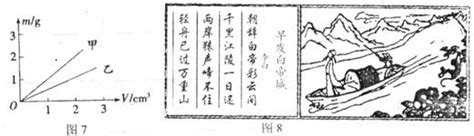 m/g
3
2
1
0
甲
乙
1 2 3 V/cm³
图7
早发白帝城
朝辞白帝彩云间
千里江陵一日还
两岸猿声啼不住
轻舟已过万重山
图8